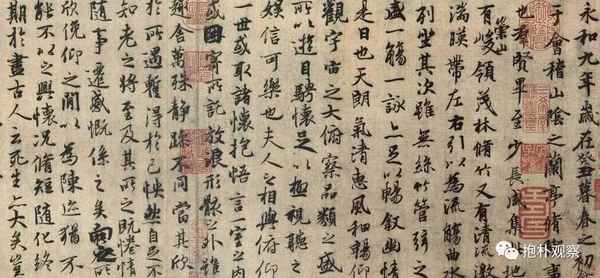 永和九年歲在癸丑暮春之初
于會稽山陰之蘭亭脩
也群賢畢至少長咸集
有崇山峻領茂林脩竹又有清流
湍暎帶左右引以為流觴曲水
列坐其次雖無絲竹管弦之
盛一觴一詠亦足以暢敘幽情
是日也天朗氣清惠風和暢仰
觀宇宙之大俯察品類之盛
所以遊目騁懷足以極視聽
娛信可樂也夫人之相與俯仰
一世或取諸懷抱悟言一室之內
或因寄所託放浪形骸之外雖
趣舍萬殊靜躁不同當其欣
於所遇蹔得於己怏然自足不
知老之將至及其所之既惓情
隨事遷感慨係之矣向之所
欣俛仰之閒以為陳迹猶不
能不以之興懷況脩短隨化終
期於盡古人云死生亦大矣豈
抱朴观察